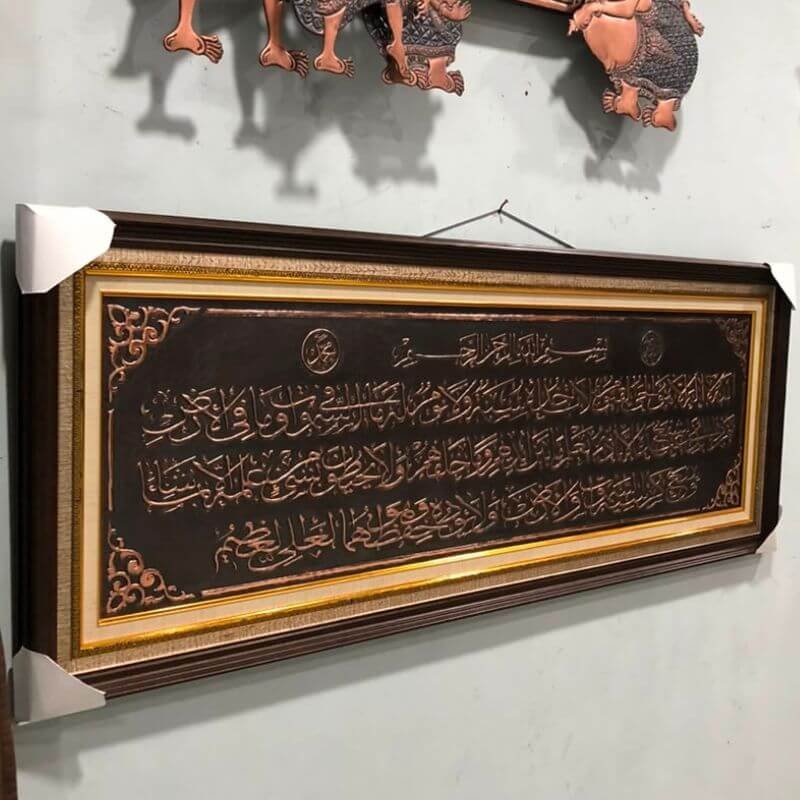 الله بسم الله الرحمن الرحيم محمد
الله لا إله إلا هو الحي القيوم لا تأخذه سنة ولا نوم له ما في السموات وما في الأرض
من ذا الذي يشفع عنده إلا بإذنه يعلم ما بين أيديهم وما خلفهم ولا يحيطون بشيء من علمه إلا بما شاء
وسع كرسيه السموات والأرض ولا يؤده حفظهما وهو العلي العظيم